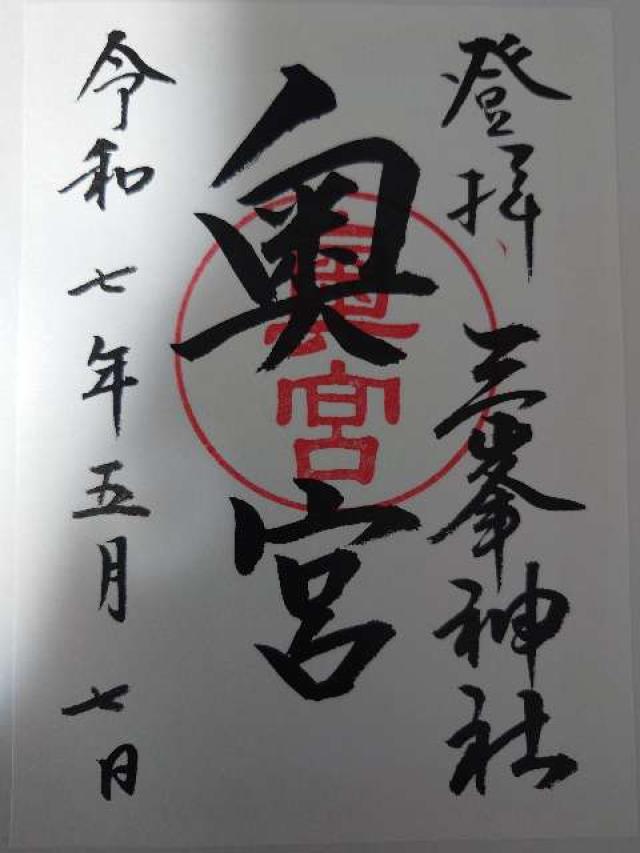 登拝 三峯神社
奥宮
奥宮
令和七年五月七日